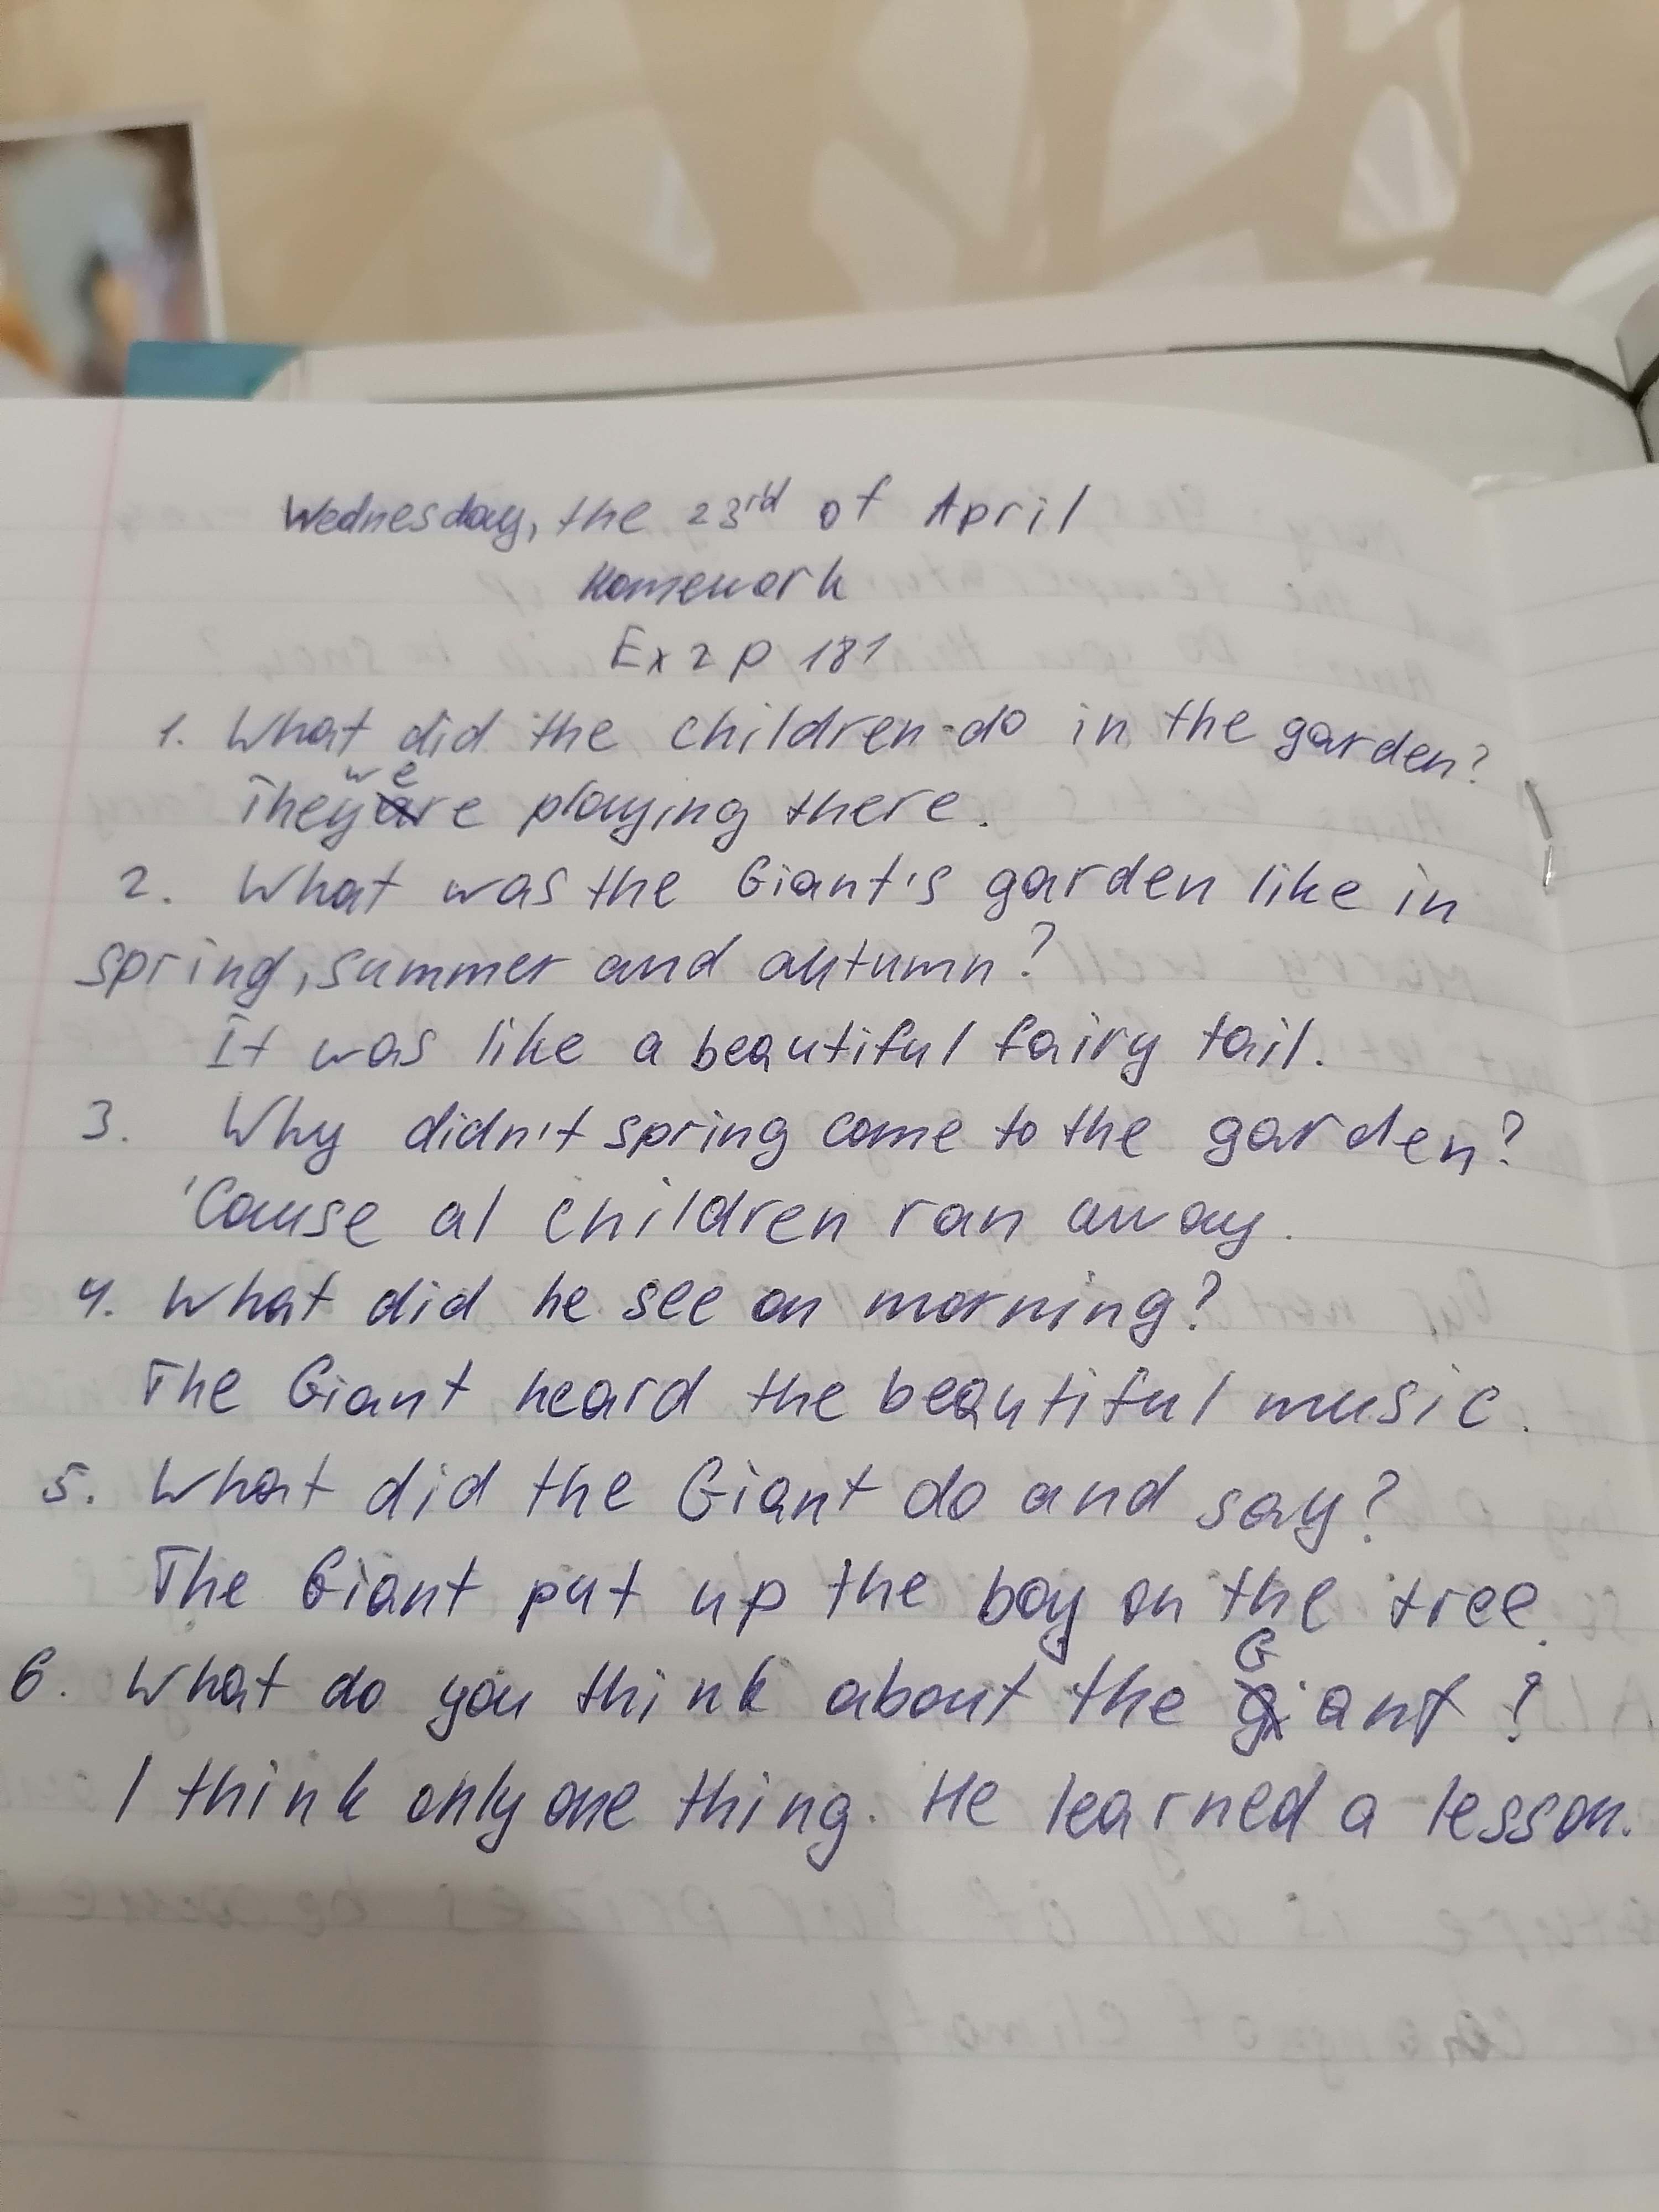 Wednesday, the 23rd of April
Homework
Ex 2 p 181
1. What did the children do in the garden?
They were playing there.
2. What was the Giant's garden like in
spring, summer and autumn?
It was like a beautiful fairy tail.
3. Why didn't spring come to the garden?
'Cause al children ran away.
4. What did he see on morning?
The Giant heard the beautiful music.
5. What did the Giant do and say?
The Giant put up the boy on the tree.
6. What do you think about the Giant?
I think only one thing. He learned a lesson.